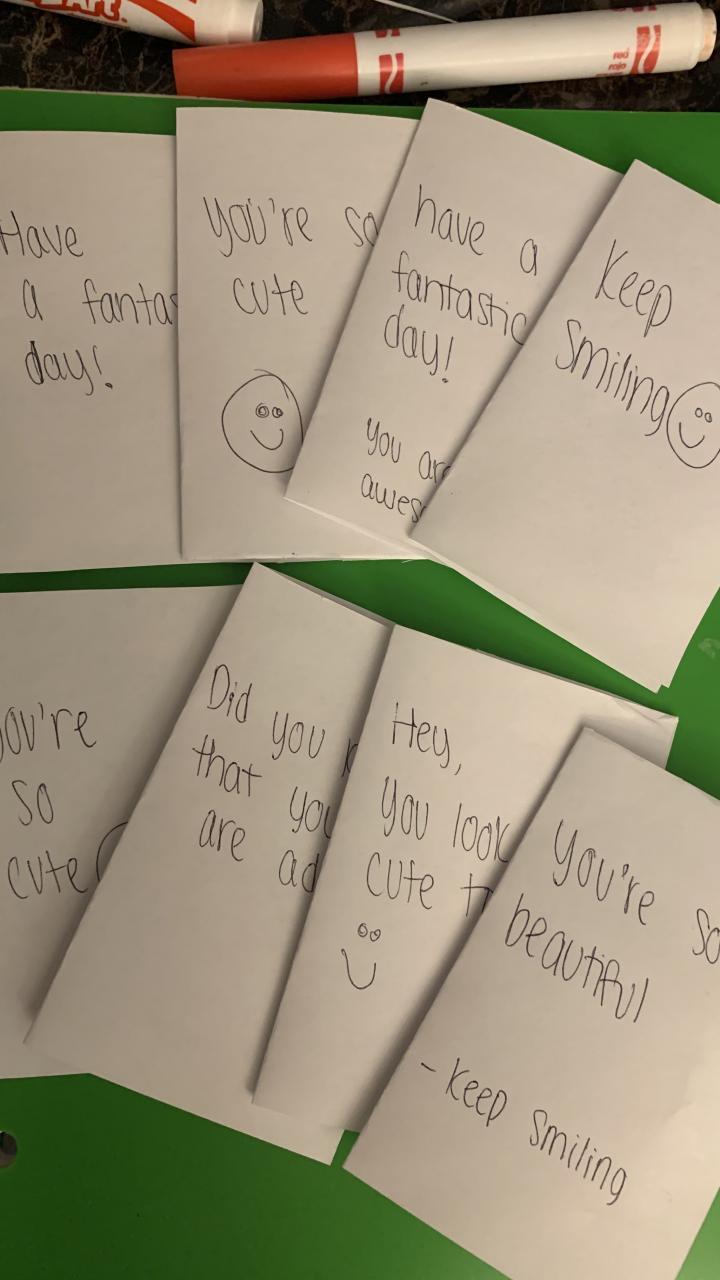 Art
red
rojo
Have
a fantas
day!
you're so
cute
have a
fantastic
day!
you are
awes
Keep
Smiling
you're
so
cute
Did you k
that you
are ad
Hey,
you look
cute t
you're so
beautiful
- Keep smiling